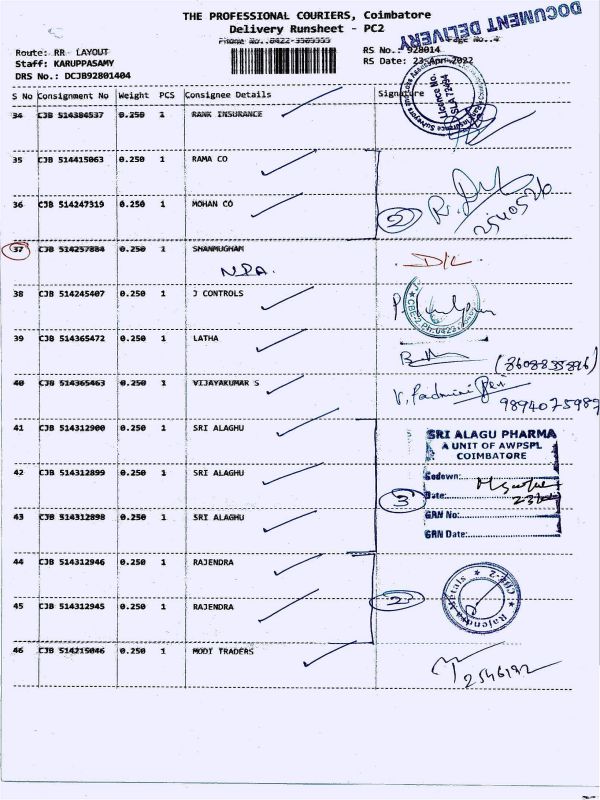 THE PROFESSIONAL COURIERS, Coimbatore
Delivery Runsheet - PC2
DOCUMENT DELIVERY
Phone No..0422-3505555
Page No..4
Route: RR LAYOUT
RS No.: 928014
Staff: KARUPPASAMY
RS Date: 23 Apr 2022
DRS No.: DCJB92801404
S No Consignment No Weight PCS Consignee Details Signature
Licence No.
34 CJB 514384537 0.250 1 RANK INSURANCE
35 CJB 514415063 0.250 1 RAMA CO
36 CJB 514247319 0.250 1 MOHAN CO
2540520
37 CJB 514257884 0.250 1 SHANMUGHAM
N.D.A. D/L
38 CJB 514245407 0.250 1 J CONTROLS
39 CJB 514365472 0.250 1 LATHA
(8608835896)
40 CJB 514365463 0.250 1 VIJAYAKUMAR S
V. Padmini
9894075987
41 CJB 514312900 0.250 1 SRI ALAGHU
SRI ALAGU PHARMA
A UNIT OF AWPSPL
COIMBATORE
42 CJB 514312899 0.250 1 SRI ALAGHU
Godown:
3 Date:
43 CJB 514312898 0.250 1 SRI ALAGHU
GRN No:
GRN Date:
44 CJB 514312946 0.250 1 RAJENDRA
45 CJB 514312945 0.250 1 RAJENDRA
2
Rajendra Metals * CBE-2 *
46 CJB 514215046 0.250 1 MODI TRADERS
2546192